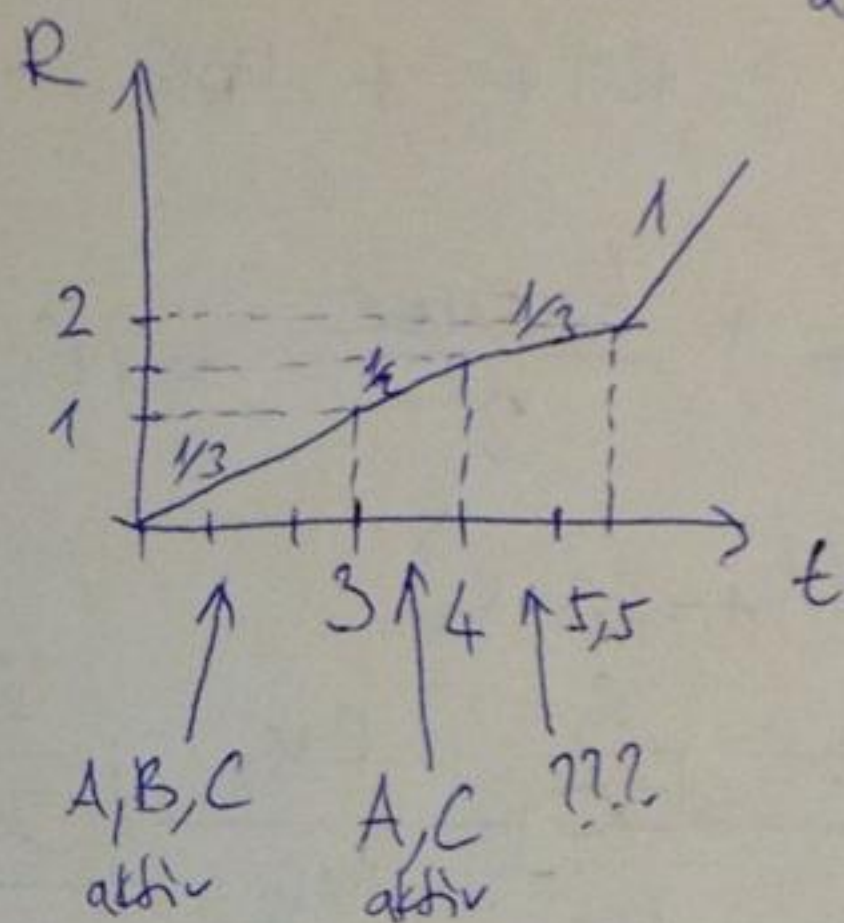 R
1
2
1/3
1/2
1
1/3
3
4
5,5
t
A, B, C
aktiv
A, C
aktiv
???